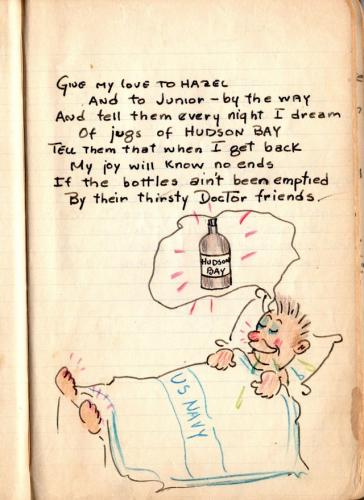 Give my love to Hazel
And to Junior - by the way
And tell them every night I dream
Of jugs of HUDSON BAY
Tell Them that when I get back
My joy will know no ends
If the bottles ain't been emptied
By their thirsty Doctor friends.
HUDSON
BAY
US NAVY